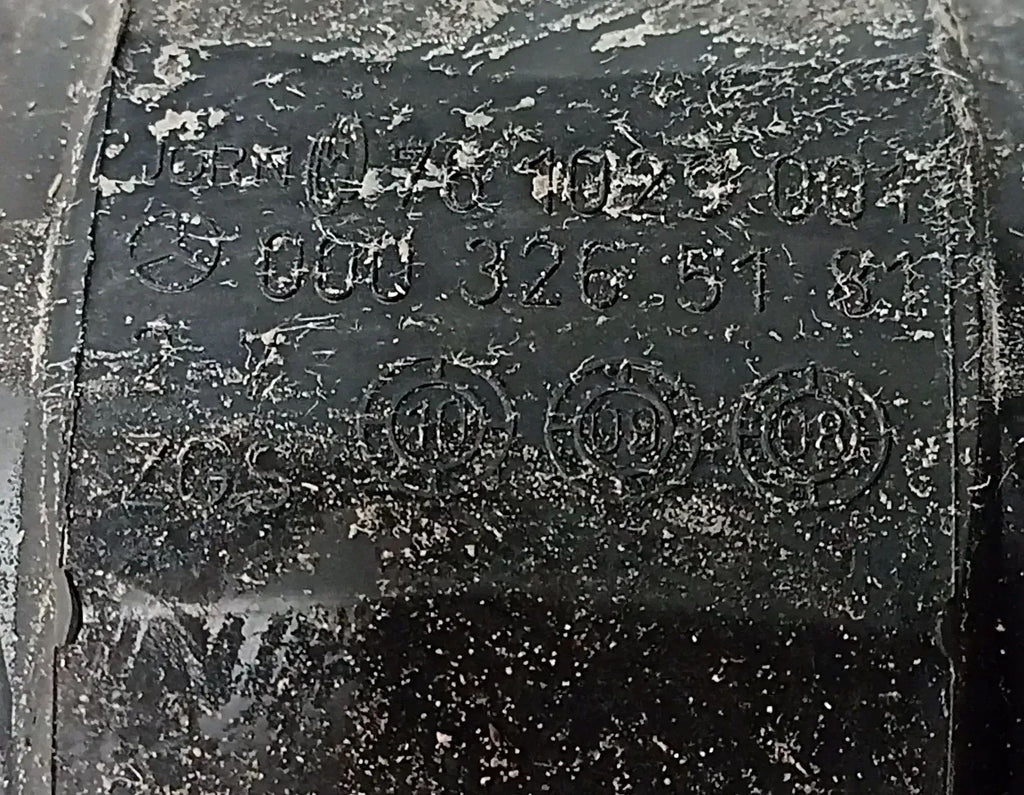 JÖRN 76 1029 001
000 326 51 81
ZGS 10 09 08